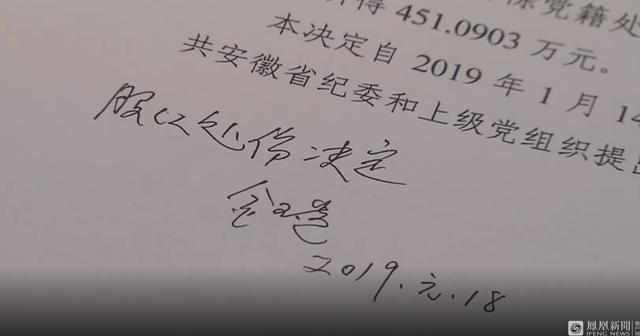 除党籍处
所得 451.0903 万元。
本决定自 2019 年 1 月 14
共安徽省纪委和上级党组织提出
服从处份决定
金
2019.元.18
凤凰新闻
IFENG NEWS